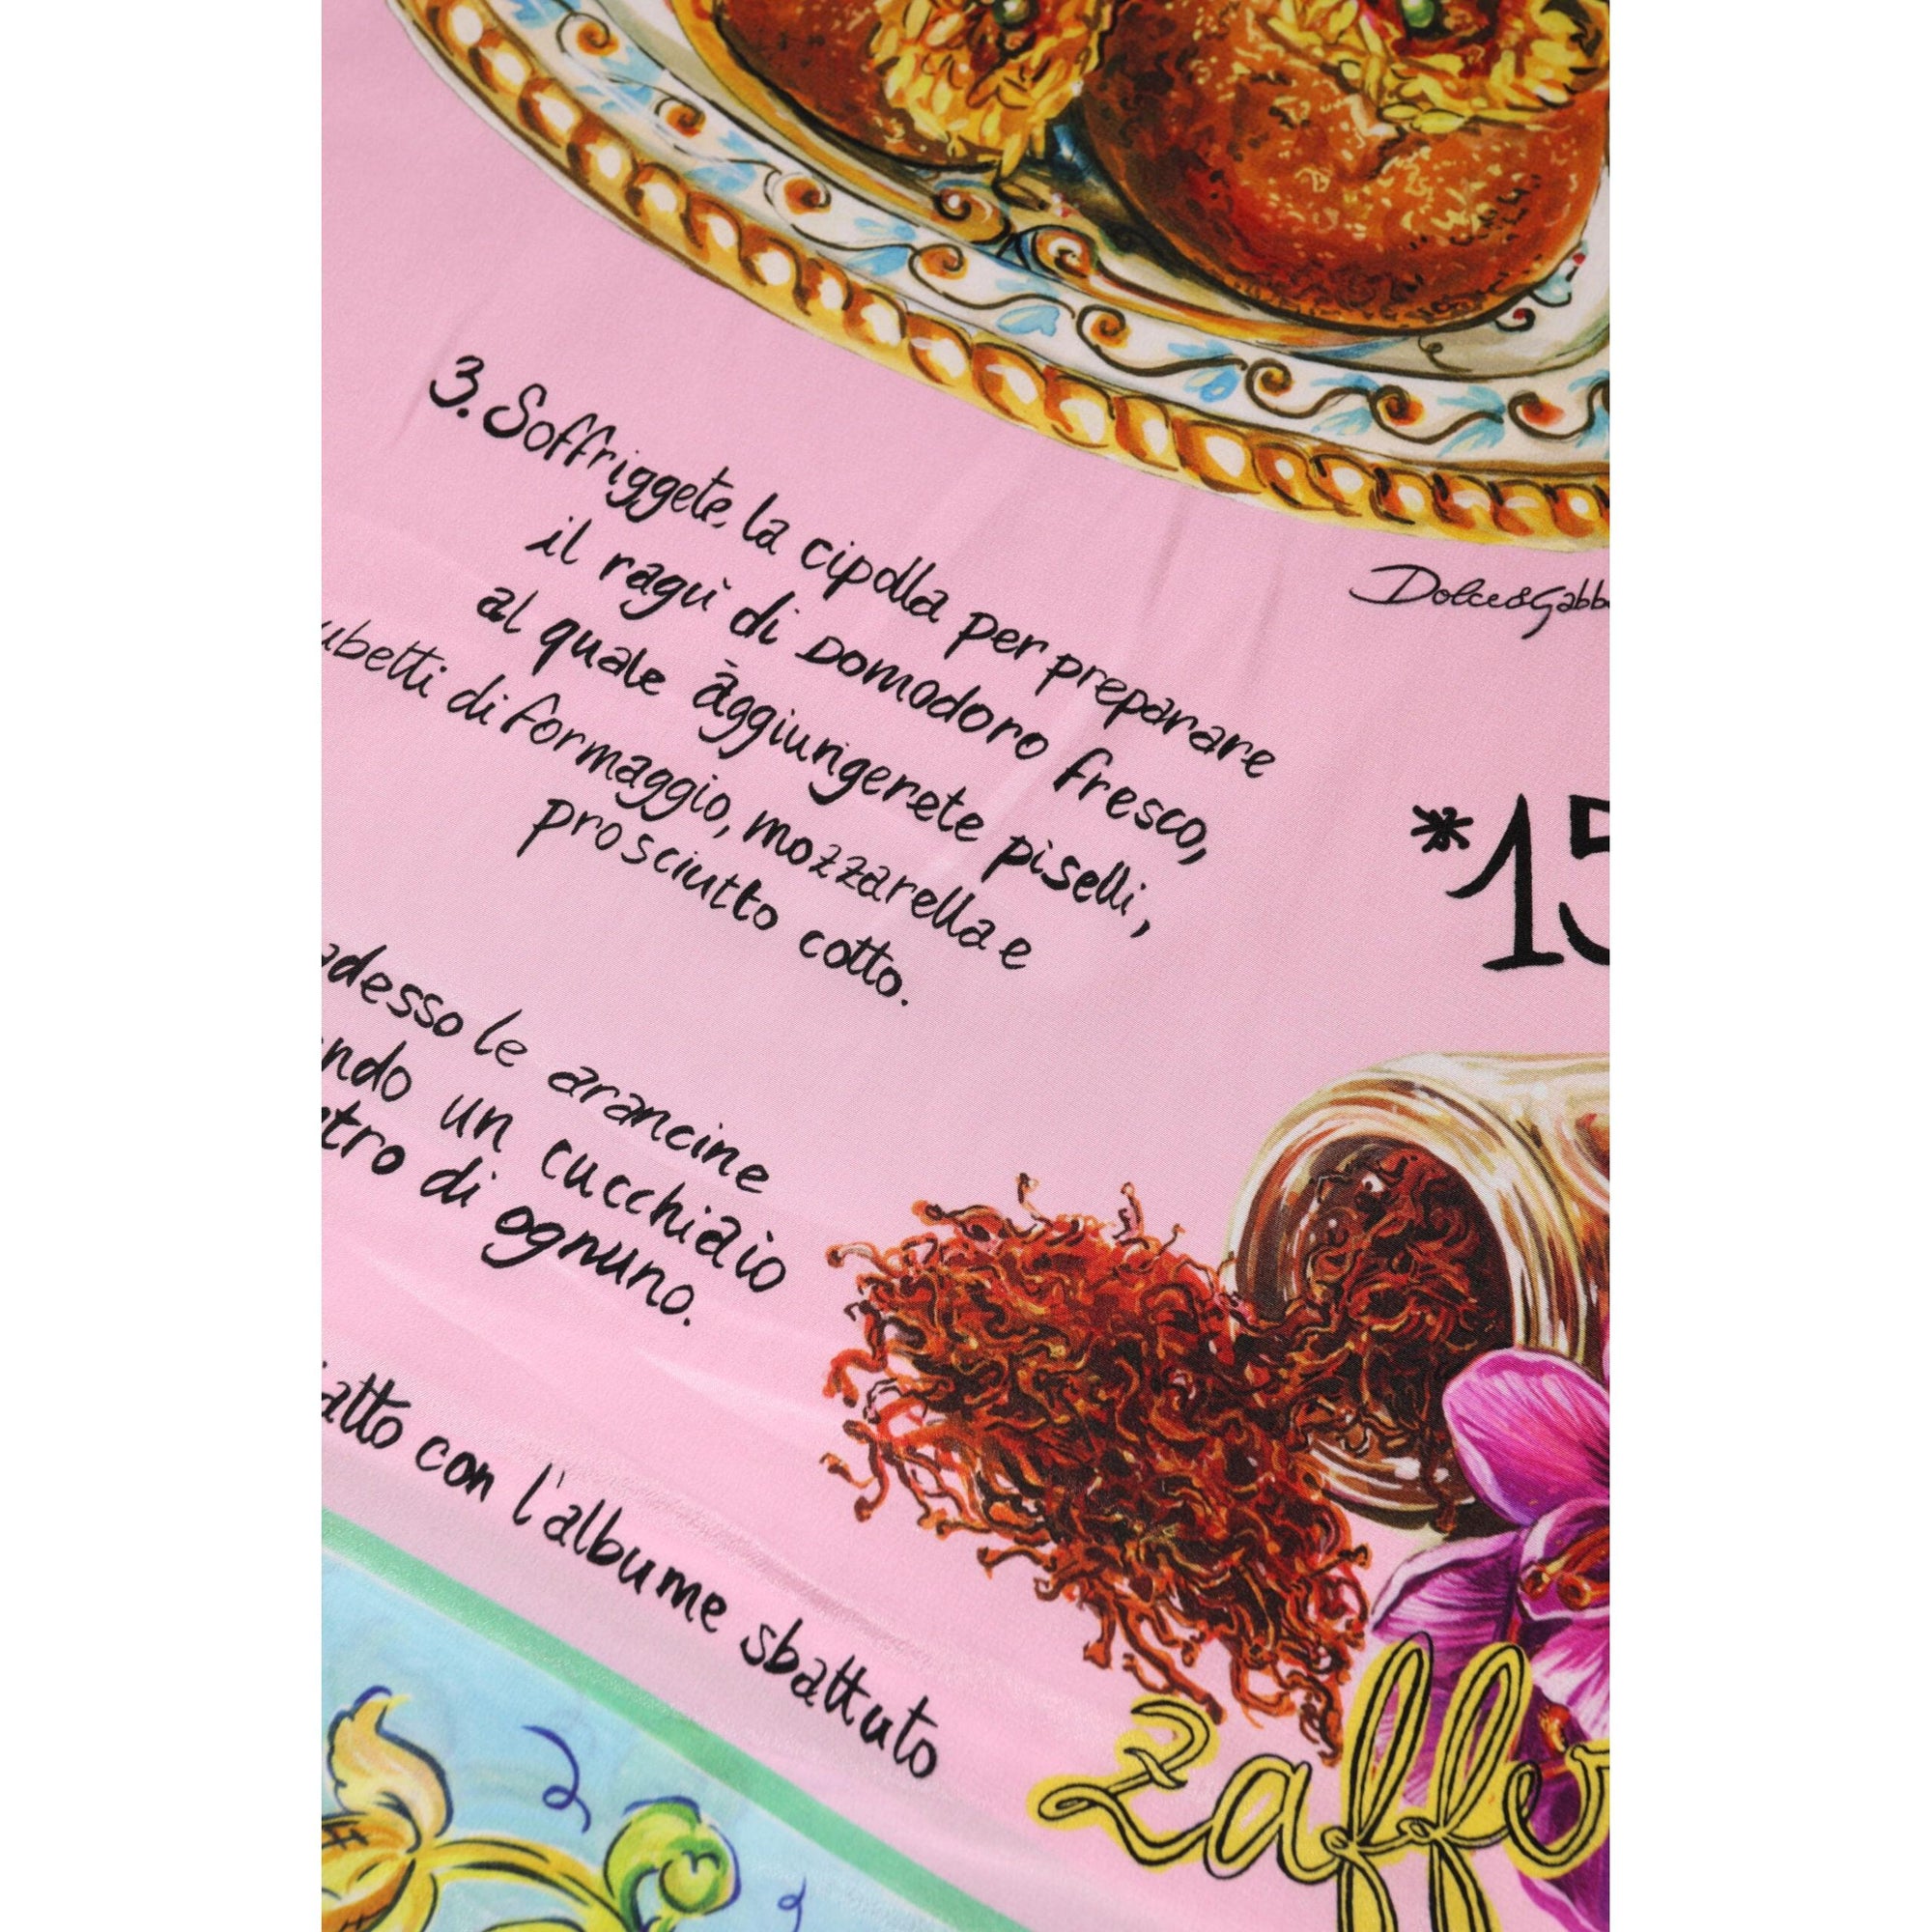 3. Soffriggete la cipolla per preparare
il ragù di Domodoro fresco,
al quale aggiungerete piselli,
ubetti di formaggio, mozzarella e
prosciutto cotto.
Dolce&Gabb
*15
adesso le arancine
ndo un cucchiaio
tro di ognuno.
atto con l'albume sbattuto
Zaffe